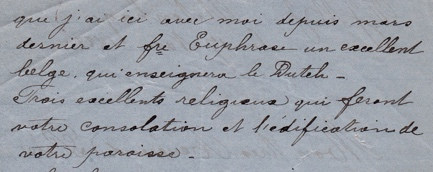 que j'ai ici avec moi depuis mars
dernier et fre Euphrase un excellent
belge, qui enseignera le Dutch -
Trois excellents religieux qui feront
votre consolation et l'édification de
votre paroisse -